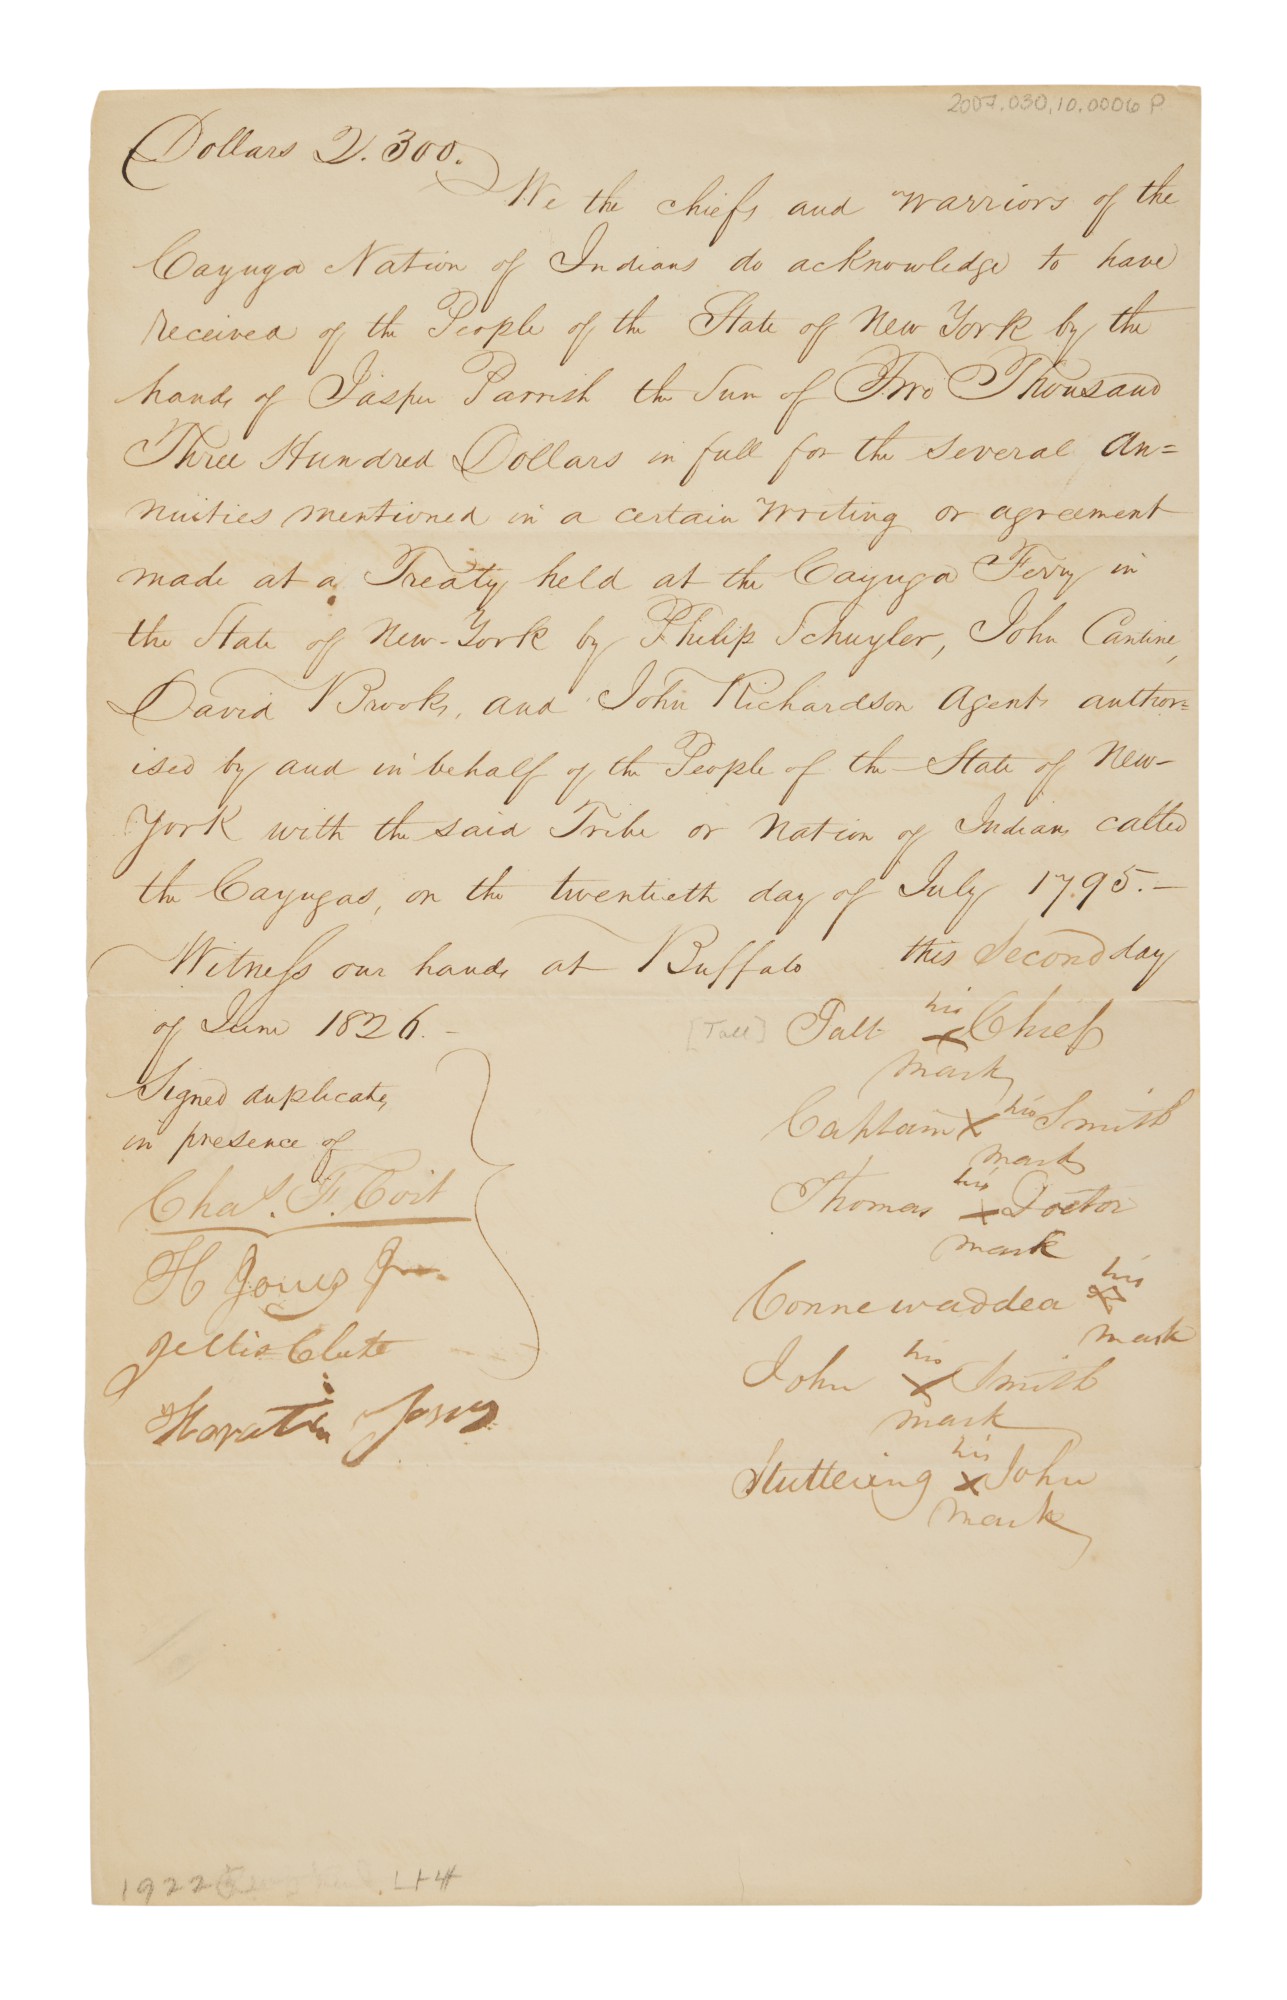 2007.030.10.0006 P
Dollars 2.300.
We the chiefs and warriors of the
Cayuga Nation of Indians do acknowledge to have
received of the People of the State of New York by the
hands of Jasper Parrish the Sum of Two Thousand
Three Hundred Dollars in full for the several an=
nuities mentioned in a certain writing or agreement
made at a Treaty held at the Cayuga Ferry in
the State of New-York by Philip Schuyler, John Cantine,
David Brooks, and John Richardson Agents author=
ised by and in behalf of the People of the State of New-
York with the said Tribe or Nation of Indians called
the Cayugas, on the twentieth day of July 1795.-
Witness our hands at Buffalo this Second day
of June 1826.-
Signed duplicates
in presence of
Chas. F. Coit
H Jones Jr.
Jellis Clute
Horatio Jones
[Tall] Tall his x Chief
mark
Captain x his Smith
mark
Thomas his x Doctor
mark
Connewaddea his x
mark
John his x Smith
mark
Stuttering his x John
mark
1922